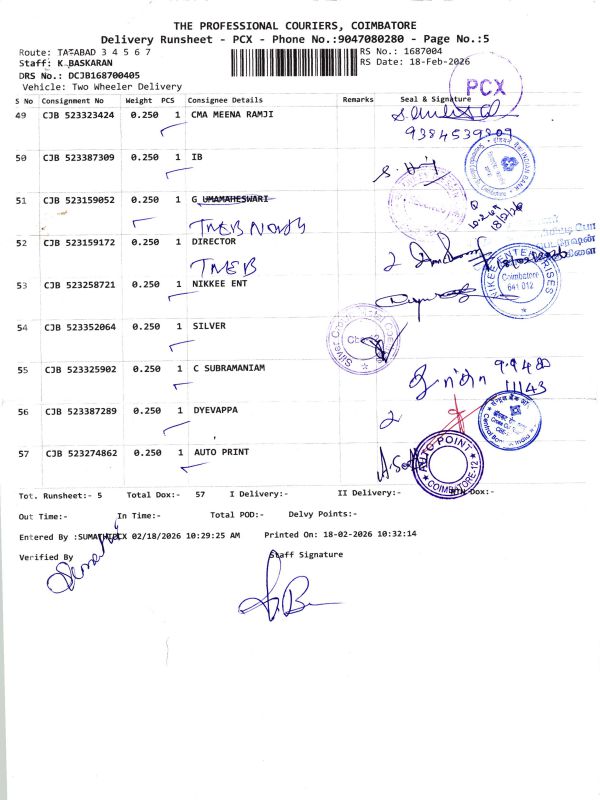 THE PROFESSIONAL COURIERS, COIMBATORE
Delivery Runsheet - PCX - Phone No.:9047080280 - Page No.:5
Route: TATABAD 3 4 5 6 7
RS No.: 1687004
Staff: K BASKARAN
RS Date: 18-Feb-2026
DRS No.: DCJB168700405
Vehicle: Two Wheeler Delivery
PCX
S No Consignment No Weight PCS Consignee Details Remarks Seal & Signature
49 CJB 523323424 0.250 1 CMA MEENA RAMJI
9384539809
50 CJB 523387309 0.250 1 IB
INDIAN BANK
51 CJB 523159052 0.250 1 G UMAMAHESWARI
18/2/26
TNEB North
52 CJB 523159172 0.250 1 DIRECTOR
TNEB
53 CJB 523258721 0.250 1 NIKKEE ENT
NIKEE ENTERPRISES
Coimbatore
641 012
54 CJB 523352064 0.250 1 SILVER
55 CJB 523325902 0.250 1 C SUBRAMANIAM
11143
56 CJB 523387289 0.250 1 DYEVAPPA
57 CJB 523274862 0.250 1 AUTO PRINT
AUTO POINT
COIMBATORE-12
Tot. Runsheet:- 5 Total Dox:- 57 I Delivery:- II Delivery:- NTN Dox:-
Out Time:- In Time:- Total POD:- Delvy Points:-
Entered By :SUMATHIPCX 02/18/2026 10:29:25 AM Printed On: 18-02-2026 10:32:14
Verified By Staff Signature